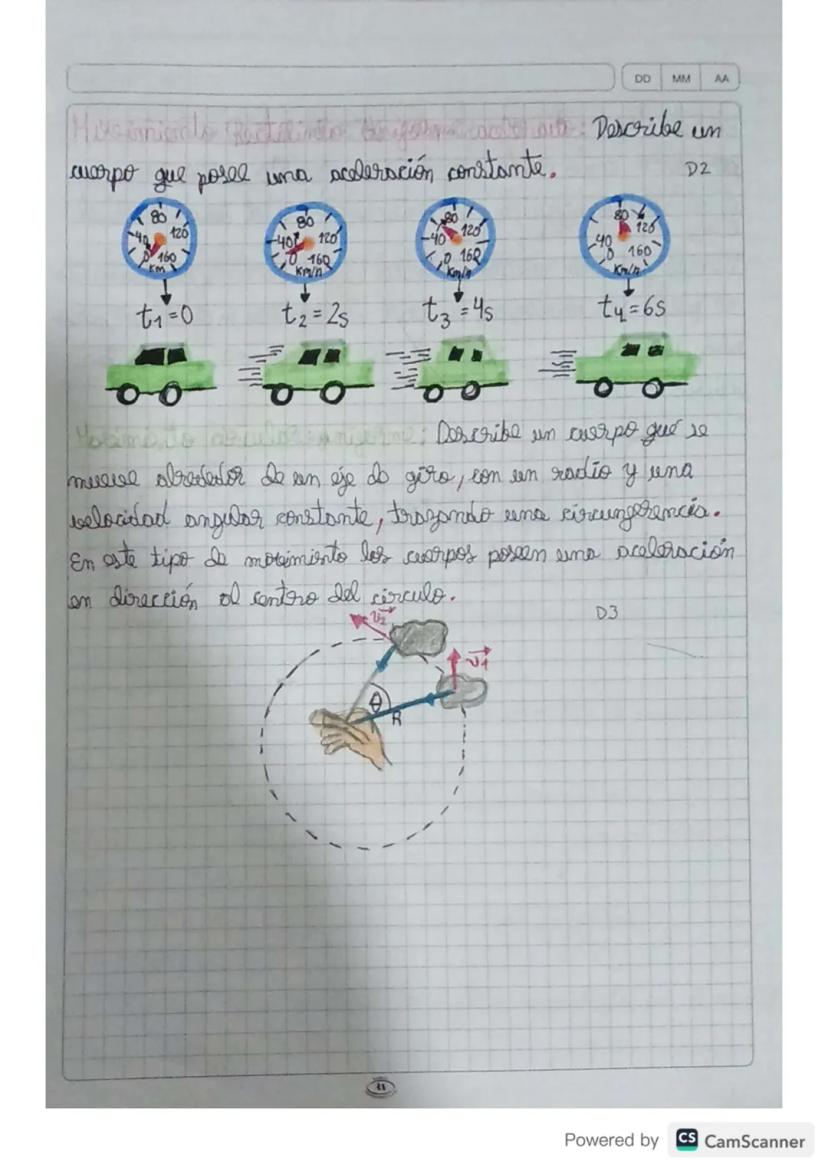 DD MM AA
Movimiento Rectilíneo Uniforme Acelerado: Describe un
cuerpo que posee una aceleración constante.
D2
80 80 80 80
40 120 40 120 40 120 40 120
0 160 0 160 0 160 0 160
Km Km/h Km/h Km/h
t1=0 t2=2s t3=4s t4=6s
Describe un cuerpo que se
mueve alrededor de un eje de giro, con un radio y una
velocidad angular constante, trazando una circunferencia.
En este tipo de movimiento los cuerpos poseen una aceleración
en dirección al centro del círculo.
D3
v2
v1
θ
R
11
Powered by CS CamScanner